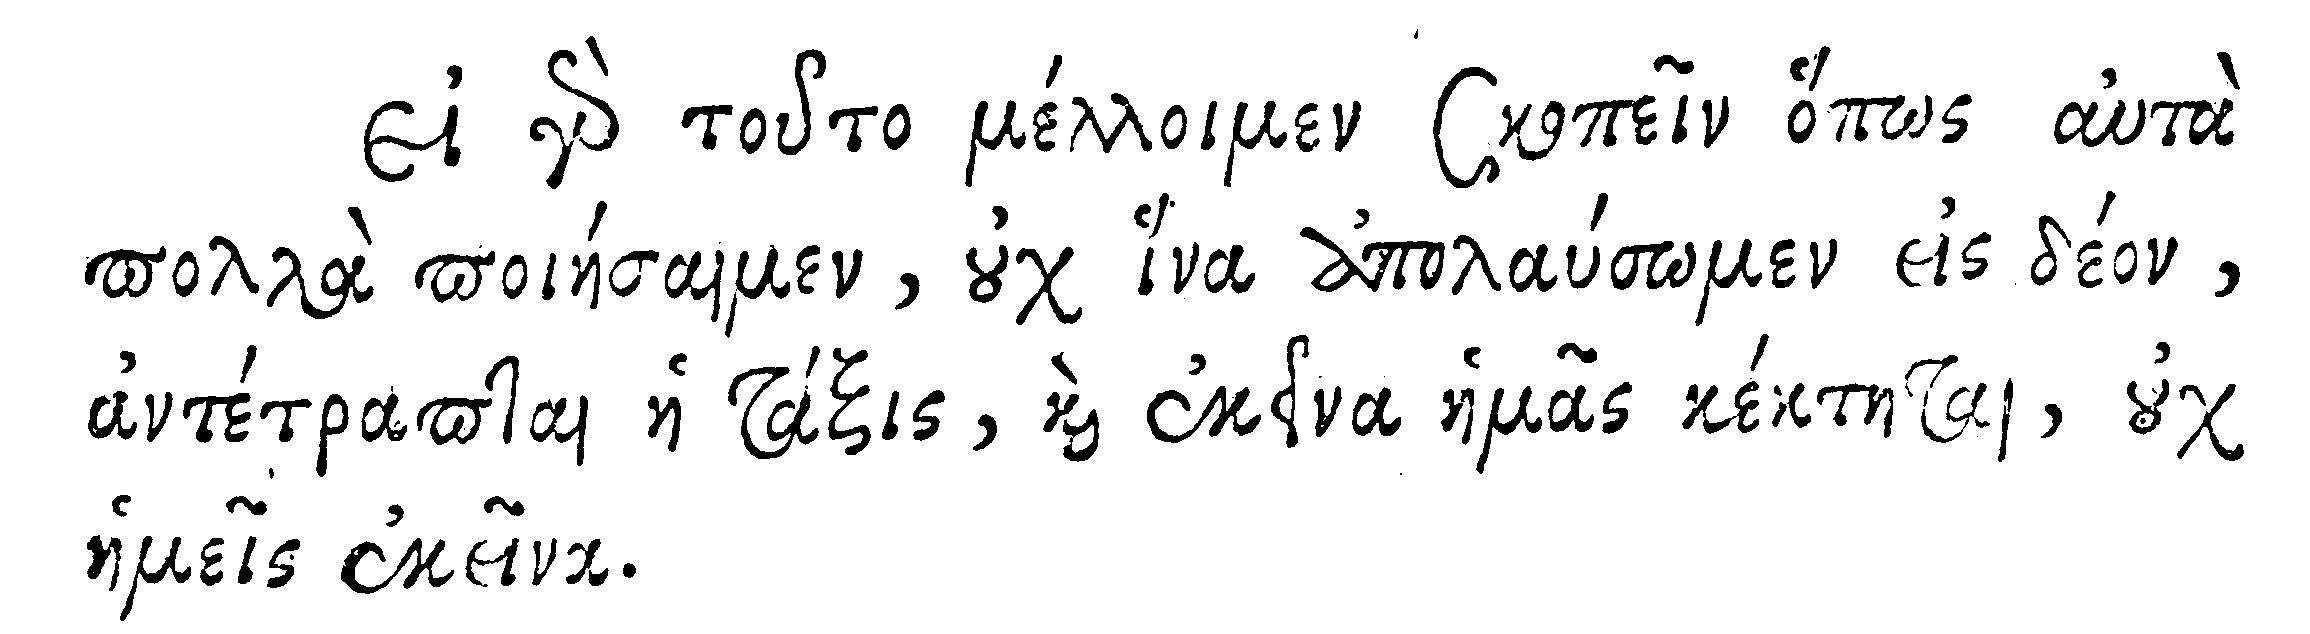 εἰ γὰρ τοῦτο μέλλοιμεν σκοπεῖν ὅπως αὐτὰ
πολλὰ ποιήσαιμεν, οὐχ ἵνα ἀπολαύσωμεν εἰς δέον,
ἀντέτραπται ἡ τάξις, καὶ ἐκεῖνα ἡμᾶς κέκτηται, οὐχ
ἡμεῖς ἐκεῖνα.